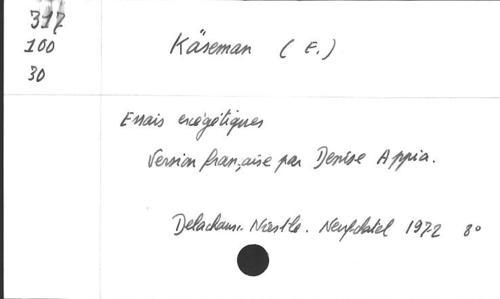 317
100
30
Käseman ( E. )
Essais exégétiques
Version française par Denise Appia.
Delachaux. Niestlé. Neufchatel 1972 8º